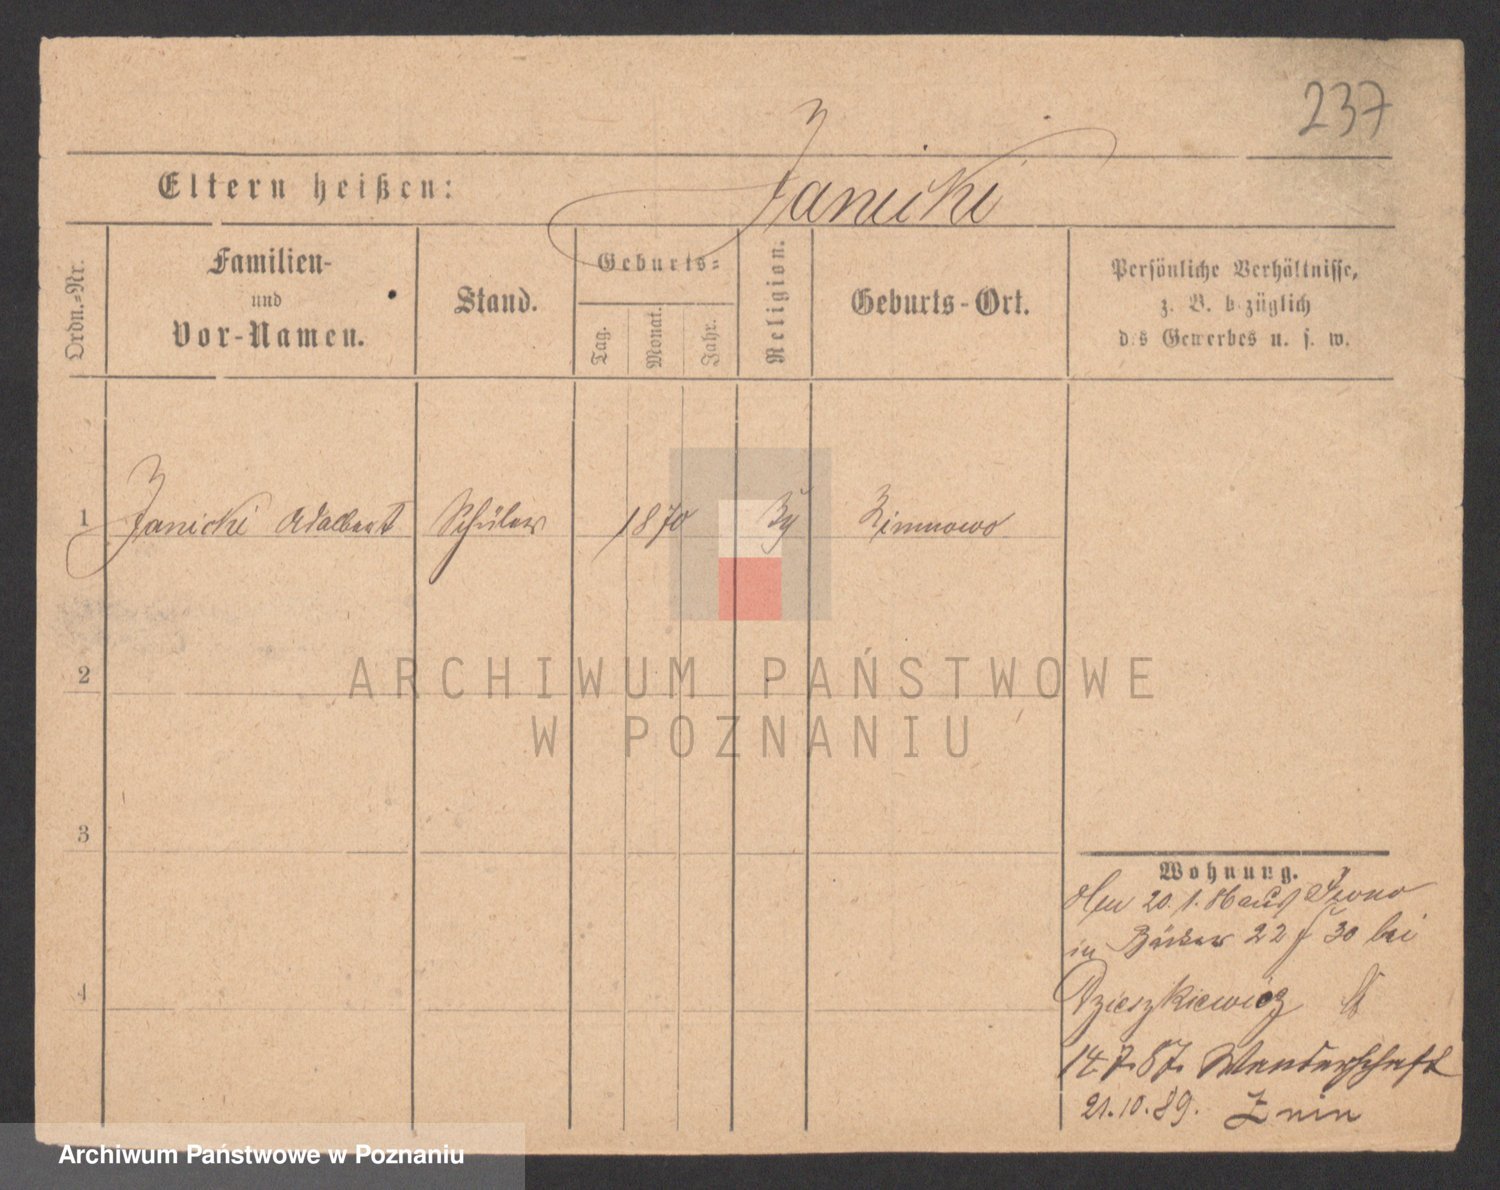 237
Eltern heißen: Janicki
Ordn.=Nr.
Familien-
und
Vor-Namen.
Stand.
Geburts=
Tag.
Monat.
Jahr.
Religion.
Geburts-Ort.
Persönliche Verhältnisse,
z. B. bezüglich
des Gewerbes u. s. w.
1 Janicki Adalbert Schüler 1870 Zimnowo
2
3
4
Wohnung.
20. 1. 86 aus
in 22 30 bei
14.7.87. Wanderschaft
21.10.89. Znin
ARCHIWUM PAŃSTWOWE
W POZNANIU
Archiwum Państwowe w Poznaniu